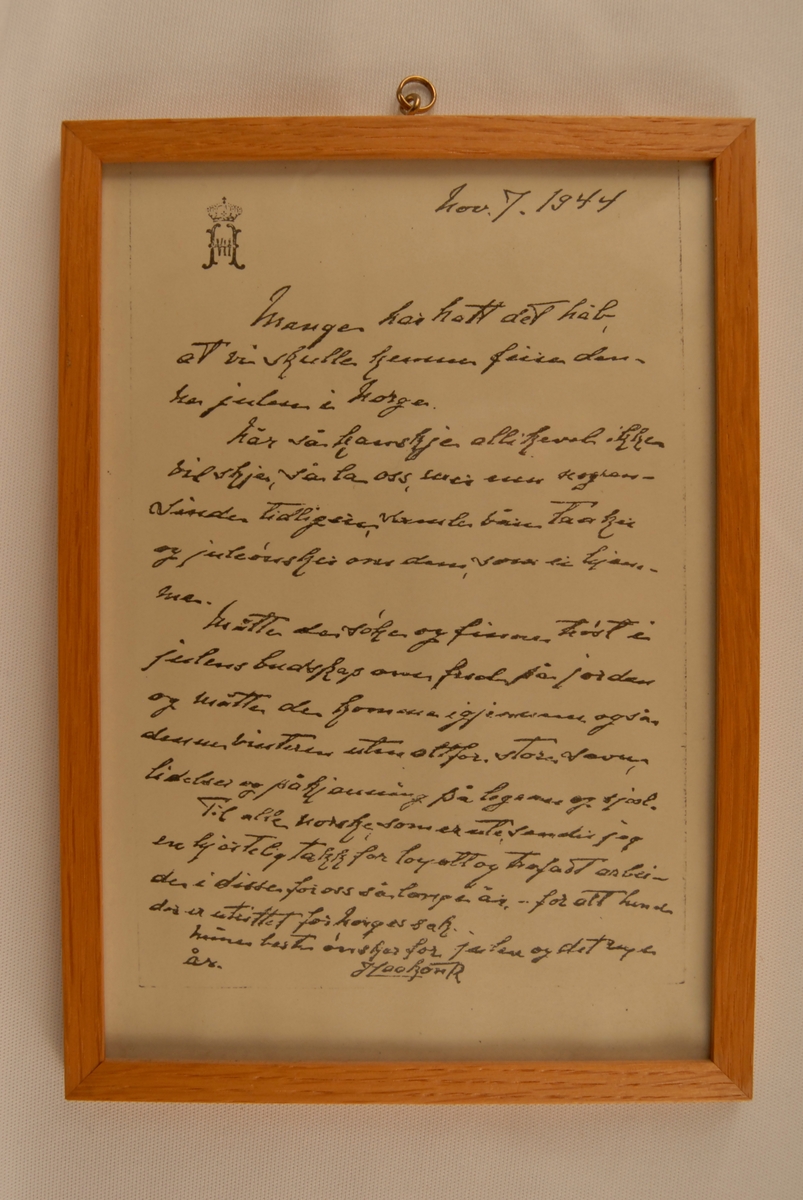 Nov. 7. 1944
Mange har hatt det håb,
at vi skulle kunne feire den-
ne julen i Norge.
Når så kanskje allikevel ikke
vil skje, så la oss, mer enn nogen-
sinde tidligere, samle våre tanker
og juleønsker om dem, som er hjem-
me.
Måtte de søke og finne trøst i
julens budskap om fred på jorden
og måtte de komme igjennem også
denne vinteren uten altfor store savn,
lidelser og påkjenning på legeme og sjel.
Til alle norske, som er ute, sender jeg
en hjertelig takk for loyalt og trofast arbei-
de i disse for oss så lange år, - for alt hvad
der er utrettet for Norges sak.
Mine beste ønsker for julen og det nye
år.
Haakon R